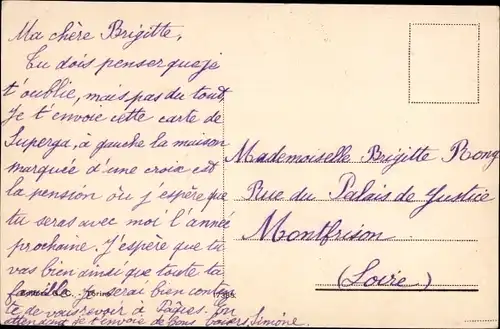 Ma chère Brigitte,
Tu dois penser que je
t'oublie, mais pas du tout.
Je t'envoie cette carte de
Superga, à gauche la maison
marquée d'une croix est
la pension où j'espère que
tu seras avec moi l'année
prochaine. J'espère que tu
vas bien ainsi que toute ta
famille. Je serai bien conten
te de vous revoir à Pâques. En
attendant je t'envoie de bons baisers Simone.
Mademoiselle Brigitte Rony
Rue du Palais de Justice
Montbrison
(Loire)